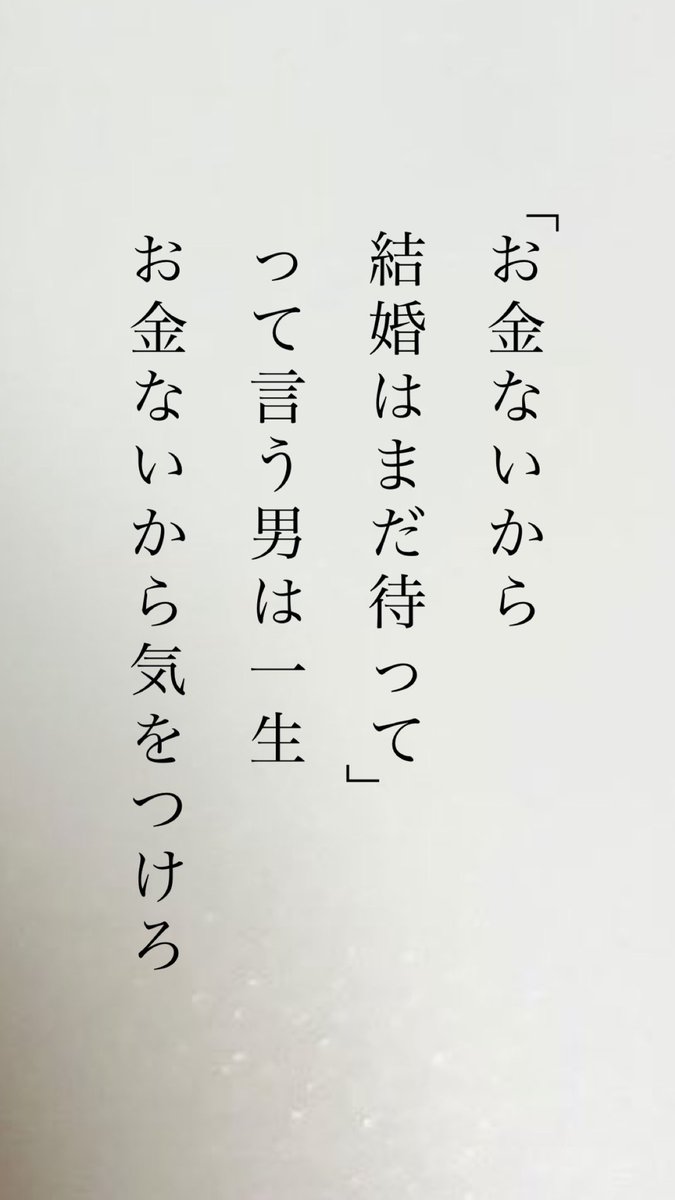 「お金ないから
結婚はまだ待って」
って言う男は一生
お金ないから気をつけろ